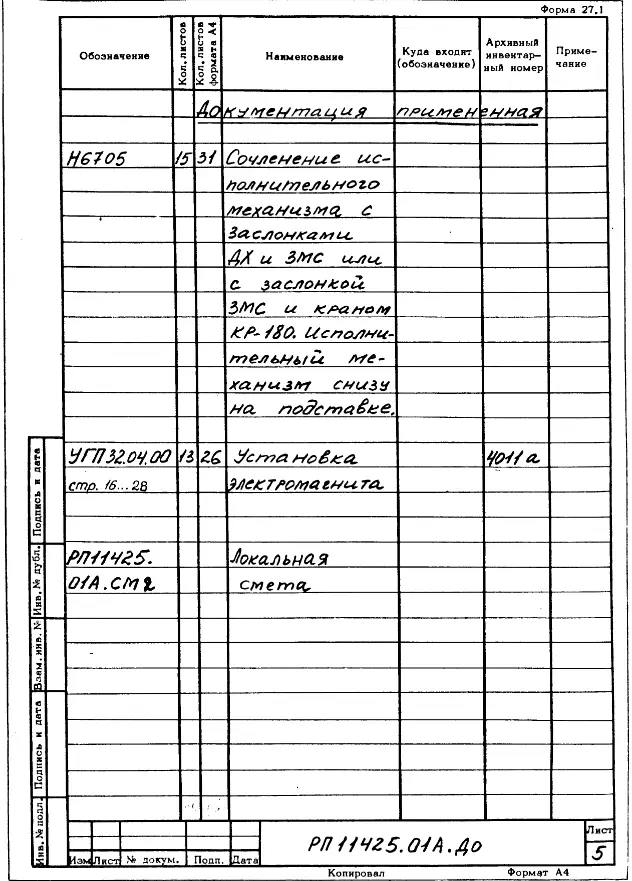 Форма 27.1
Обозначение Кол. листов Кол. листов формата А4 Наименование Куда входит (обозначение) Архивный инвентарный номер Примечание
Документация примененная
Н6705 15 31 Сочленение ис-
полнительного
механизма с
Заслонками
ДХ и ЗМС или
с заслонкой
ЗМС и краном
КР-180. Исполни-
тельный ме-
ханизм снизу
на подставке.
УГП32.04.00 13 26 Установка 4011а
стр. 16...28 электромагнита
РП11425. Локальная
01А.СМ2 смета
Инв.№ подл. Подпись и дата Взам. инв. № Инв.№ дубл. Подпись и дата
РП 11425.01А.ДО
Лист
5
Изм Лист № докум. Подп. Дата
Копировал Формат А4